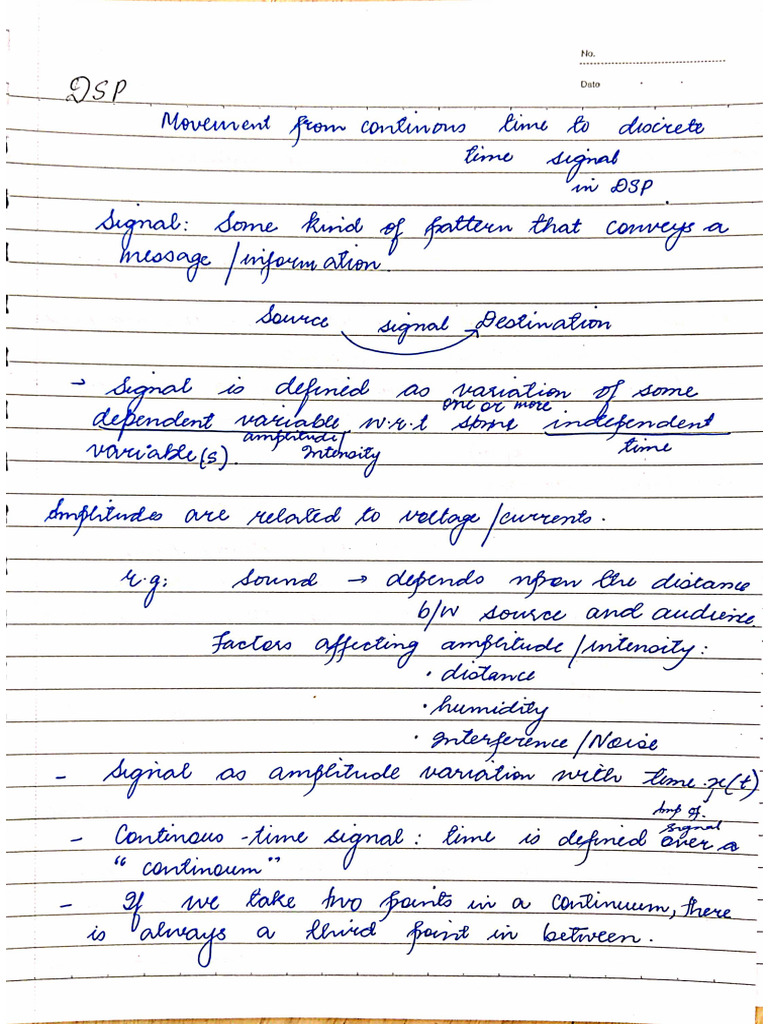 No.
Date
DSP
Movement from continous time to discrete
time signal
in DSP.
Signal: Some kind of pattern that conveys a
message / information.
Source signal Destination
→ Signal is defined as variation of some
one or more
dependent variable w.r.t some independent
amplitude/ time
variable(s). Intensity
Amplitudes are related to voltage / currents.
e.g: Sound → depends upon the distance
b/w source and audience.
Factors affecting amplitude / intensity:
• distance
• humidity
• Interference / Noise
- Signal as amplitude variation with time. x(t)
Amp of.
signal
- Continous-time signal: time is defined over a
"continoum"
- If we take two points in a continuum, there
is always a third point in between.